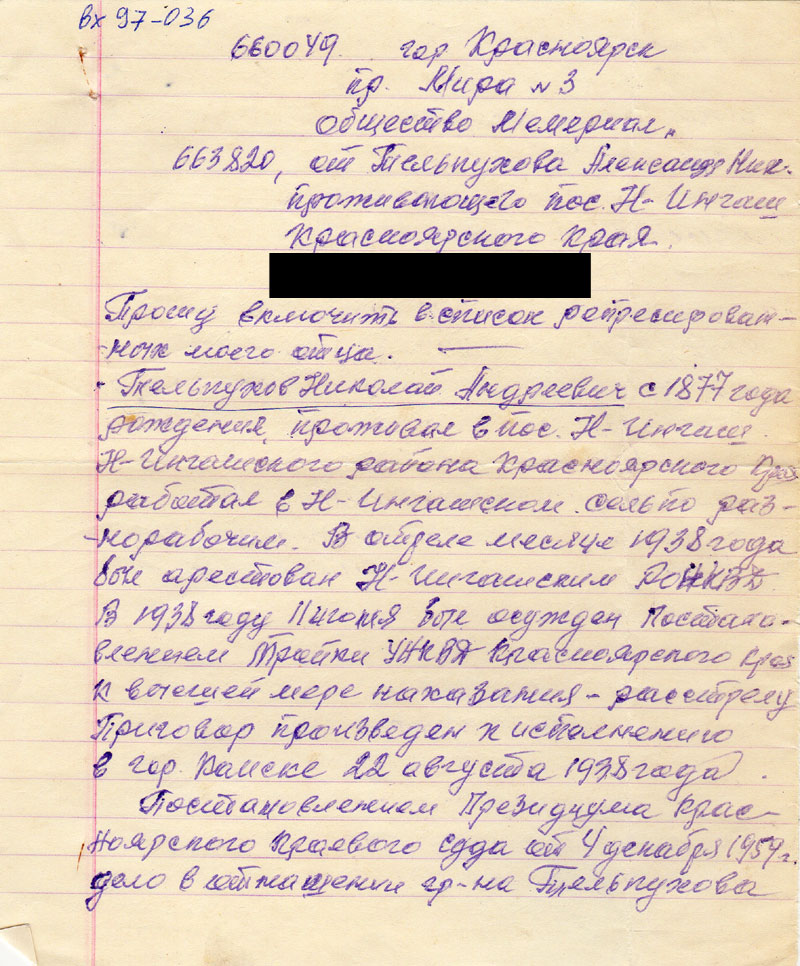 вх 97-036
660049. гор Красноярск
пр. Мира №3
Общество Мемориал"
663820, от Тельпухова Александр Ник.
проживающего пос. Н-Ингаш
Красноярского Края.
Прошу включить в список репресироват-
-ных моего отца.
- Тельпухов Николай Андреевич с 1877 года
рождения, проживал в пос. Н-Ингаш.
Н-Ингашского района Красноярского Края
работал в Н-Ингашском сельпо раз-
-норабочим. В апреле месяце 1938 года
был арестован Н-Ингашским РОНКВД
В 1938 году 11 июля был осужден Постано-
влением Тройки УНКВД Красноярского Края
к высшей мере наказания - расстрелу
Приговор произведен к исполнению
в гор. Канске 22 августа 1938 года.
Постановлением Президиума Крас-
ноярского Краевого суда от 4 декабря 1957 г.
дело в отнашении гр-на Тельпухова